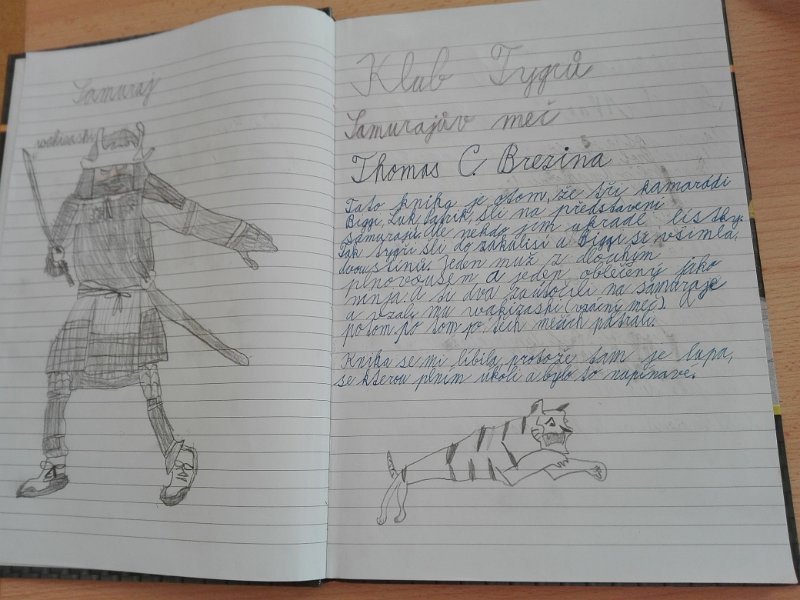 Samuraj
wakizashi
Klub Tygrů
Samurajův meč
Thomas C. Brezina
Tato kniha je otom, že tři kamarádi
Biggi, Luk šli na představení
samurajů. Ale nekdo jim ukradl lístky.
Tak tygři šli do zákulisí a Biggi si všimla
dvou stínů. Jeden muž z dlouhím
plnovousem a jeden oblečený jako
ninja. a ti dva zaútočili na samuraje
a vzaly mu wakizashi (vzácný meč). A
potom po tom po těch mečích pátrali.
Kniha se mi líbila protože tam je lupa,
se kterou plním úkoli a bylo to napínavé.